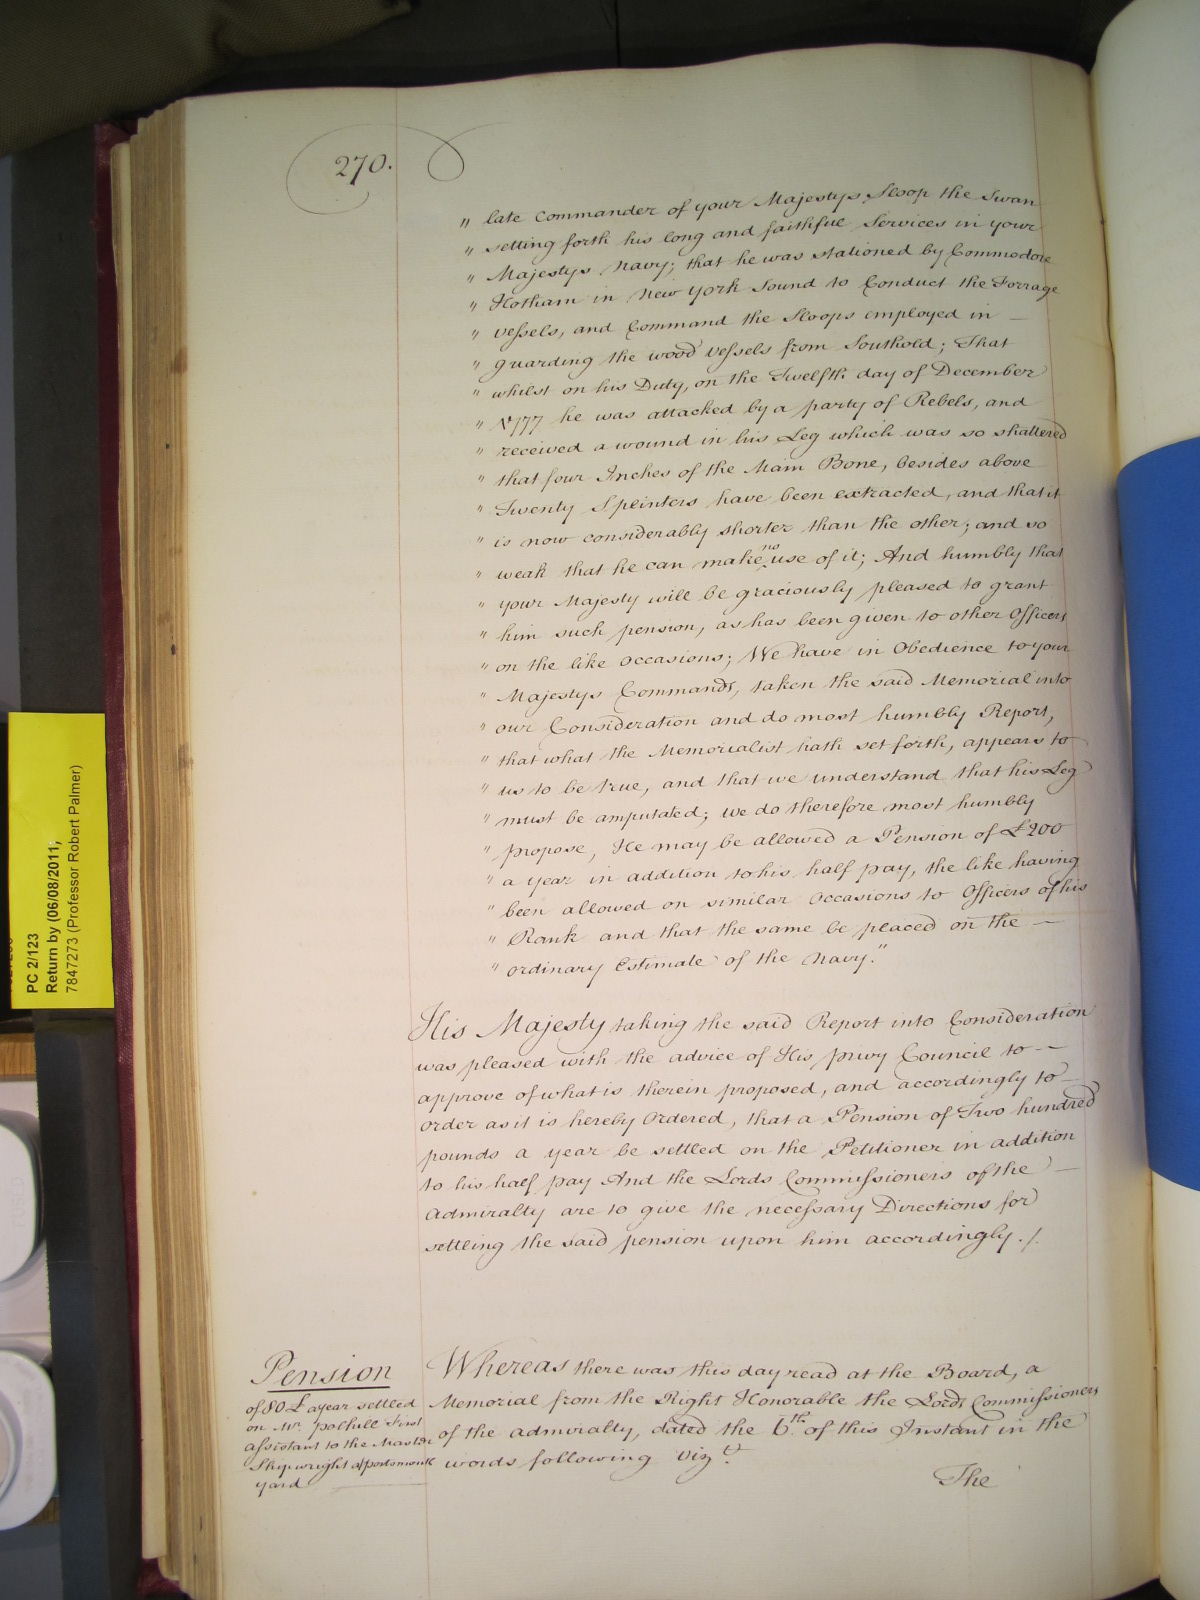 270.
" late Commander of your Majestys Sloop the Swan
" setting forth his long and faithful Services in your
" Majestys Navy; that he was stationed by Commodore
" Hotham in New York Sound to Conduct the Forrage
" vessels, and Command the Sloops employed in —
" guarding the wood vessels from Southold; That
" whilst on his Duty, on the Twelfth day of December
" 1777 he was attacked by a party of Rebels, and
" received a wound in his Leg which was so shattered
" that four Inches of the Main Bone, besides above
" Twenty Splinters have been extracted, and that it
" is now considerably shorter than the other; and so
" weak that he can make no use of it; And humbly that
" your Majesty will be graciously pleased to grant
" him such pension, as has been given to other Officers
" on the like Occasions; We have in Obedience to your
" Majestys Commands, taken the said Memorial into
" our Consideration and do most humbly Report,
" that what the Memorialist hath set forth, appears to
" us to be true, and that we understand that his Leg
" must be amputated; we do therefore most humbly
" propose, He may be allowed a Pension of £200
" a year in addition to his half pay, the like having
" been allowed on similar Occasions to Officers of his
" Rank and that the same be placed on the —
" ordinary Estimate of the Navy."
His Majesty taking the said Report into Consideration
was pleased with the advice of His privy Council to —
approve of what is therein proposed, and accordingly to —
order as it is hereby Ordered, that a Pension of Two hundred
pounds a year be settled on the Petitioner in addition
to his half pay And the Lords Commissioners of the —
Admiralty are to give the necessary Directions for
settling the said pension upon him accordingly ./.
Pension
of 80£ a year settled
on Mr. Polhill First
assistant to the Master
Shipwright at portsmouth
yard
Whereas there was this day read at the Board, a
Memorial from the Right Honorable the Lords Commissioners
of the Admiralty, dated the 6th. of this Instant in the
words following Vizt.
The
PC 2/123
Return by (06/08/2011;
7847273 (Professor Robert Palmer)